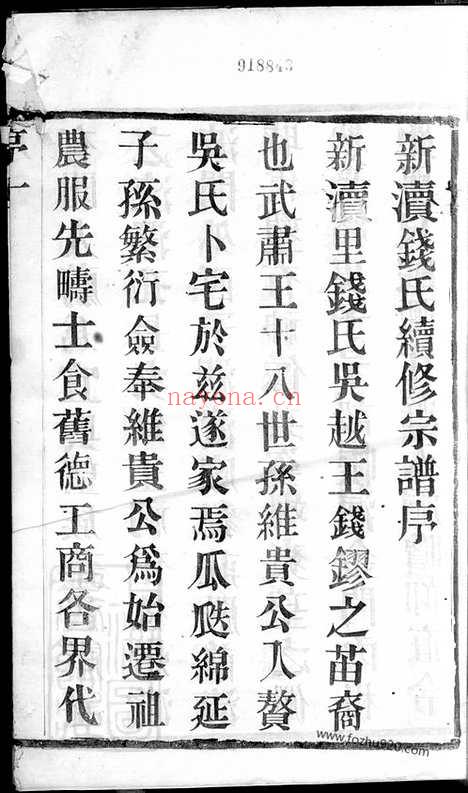 918843
新瀆錢氏續修宗譜序
新瀆里錢氏吳越王錢鏐之苗裔
也武肅王十八世孫維貴公入贅
吳氏卜宅於兹遂家焉瓜瓞綿延
子孫繁衍僉奉維貴公爲始遷祖
農服先疇士食舊德工商各界代
序一
nayona.cn
www.fozhu920.com